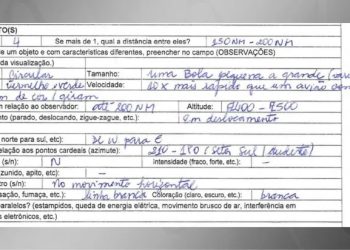 TO(S)
4 Se mais de 1, qual a distância entre eles? 150NM - 200NM
e um objeto e com características diferentes, preencher no campo (OBSERVAÇÕES)
da visualização.)
Circular Tamanho: uma Bola pequena a grande
vermelho, verde Velocidade: 10 x mais rápido que um avião com
de cor / giram
relação ao observador: até 200 NM Altitude:
to (parado, deslocando, zigue-zague, etc.) em deslocamento
norte para sul, etc): DE W para E
elação aos pontos cardeais (azimute): (Setor Sul / Sudeste)
(s/n): N - Intensidade (fraco, forte, etc.): -
zunido, apito, etc): -
tro (s/n): No movimento horizontal
sação, fumaça, etc.): linha branca Coloração (claro, escuro, etc.): branca
paralelos? (estampidos, queda de energia elétrica, movimento brusco de ar, interferência em
s eletrônicos, etc.)